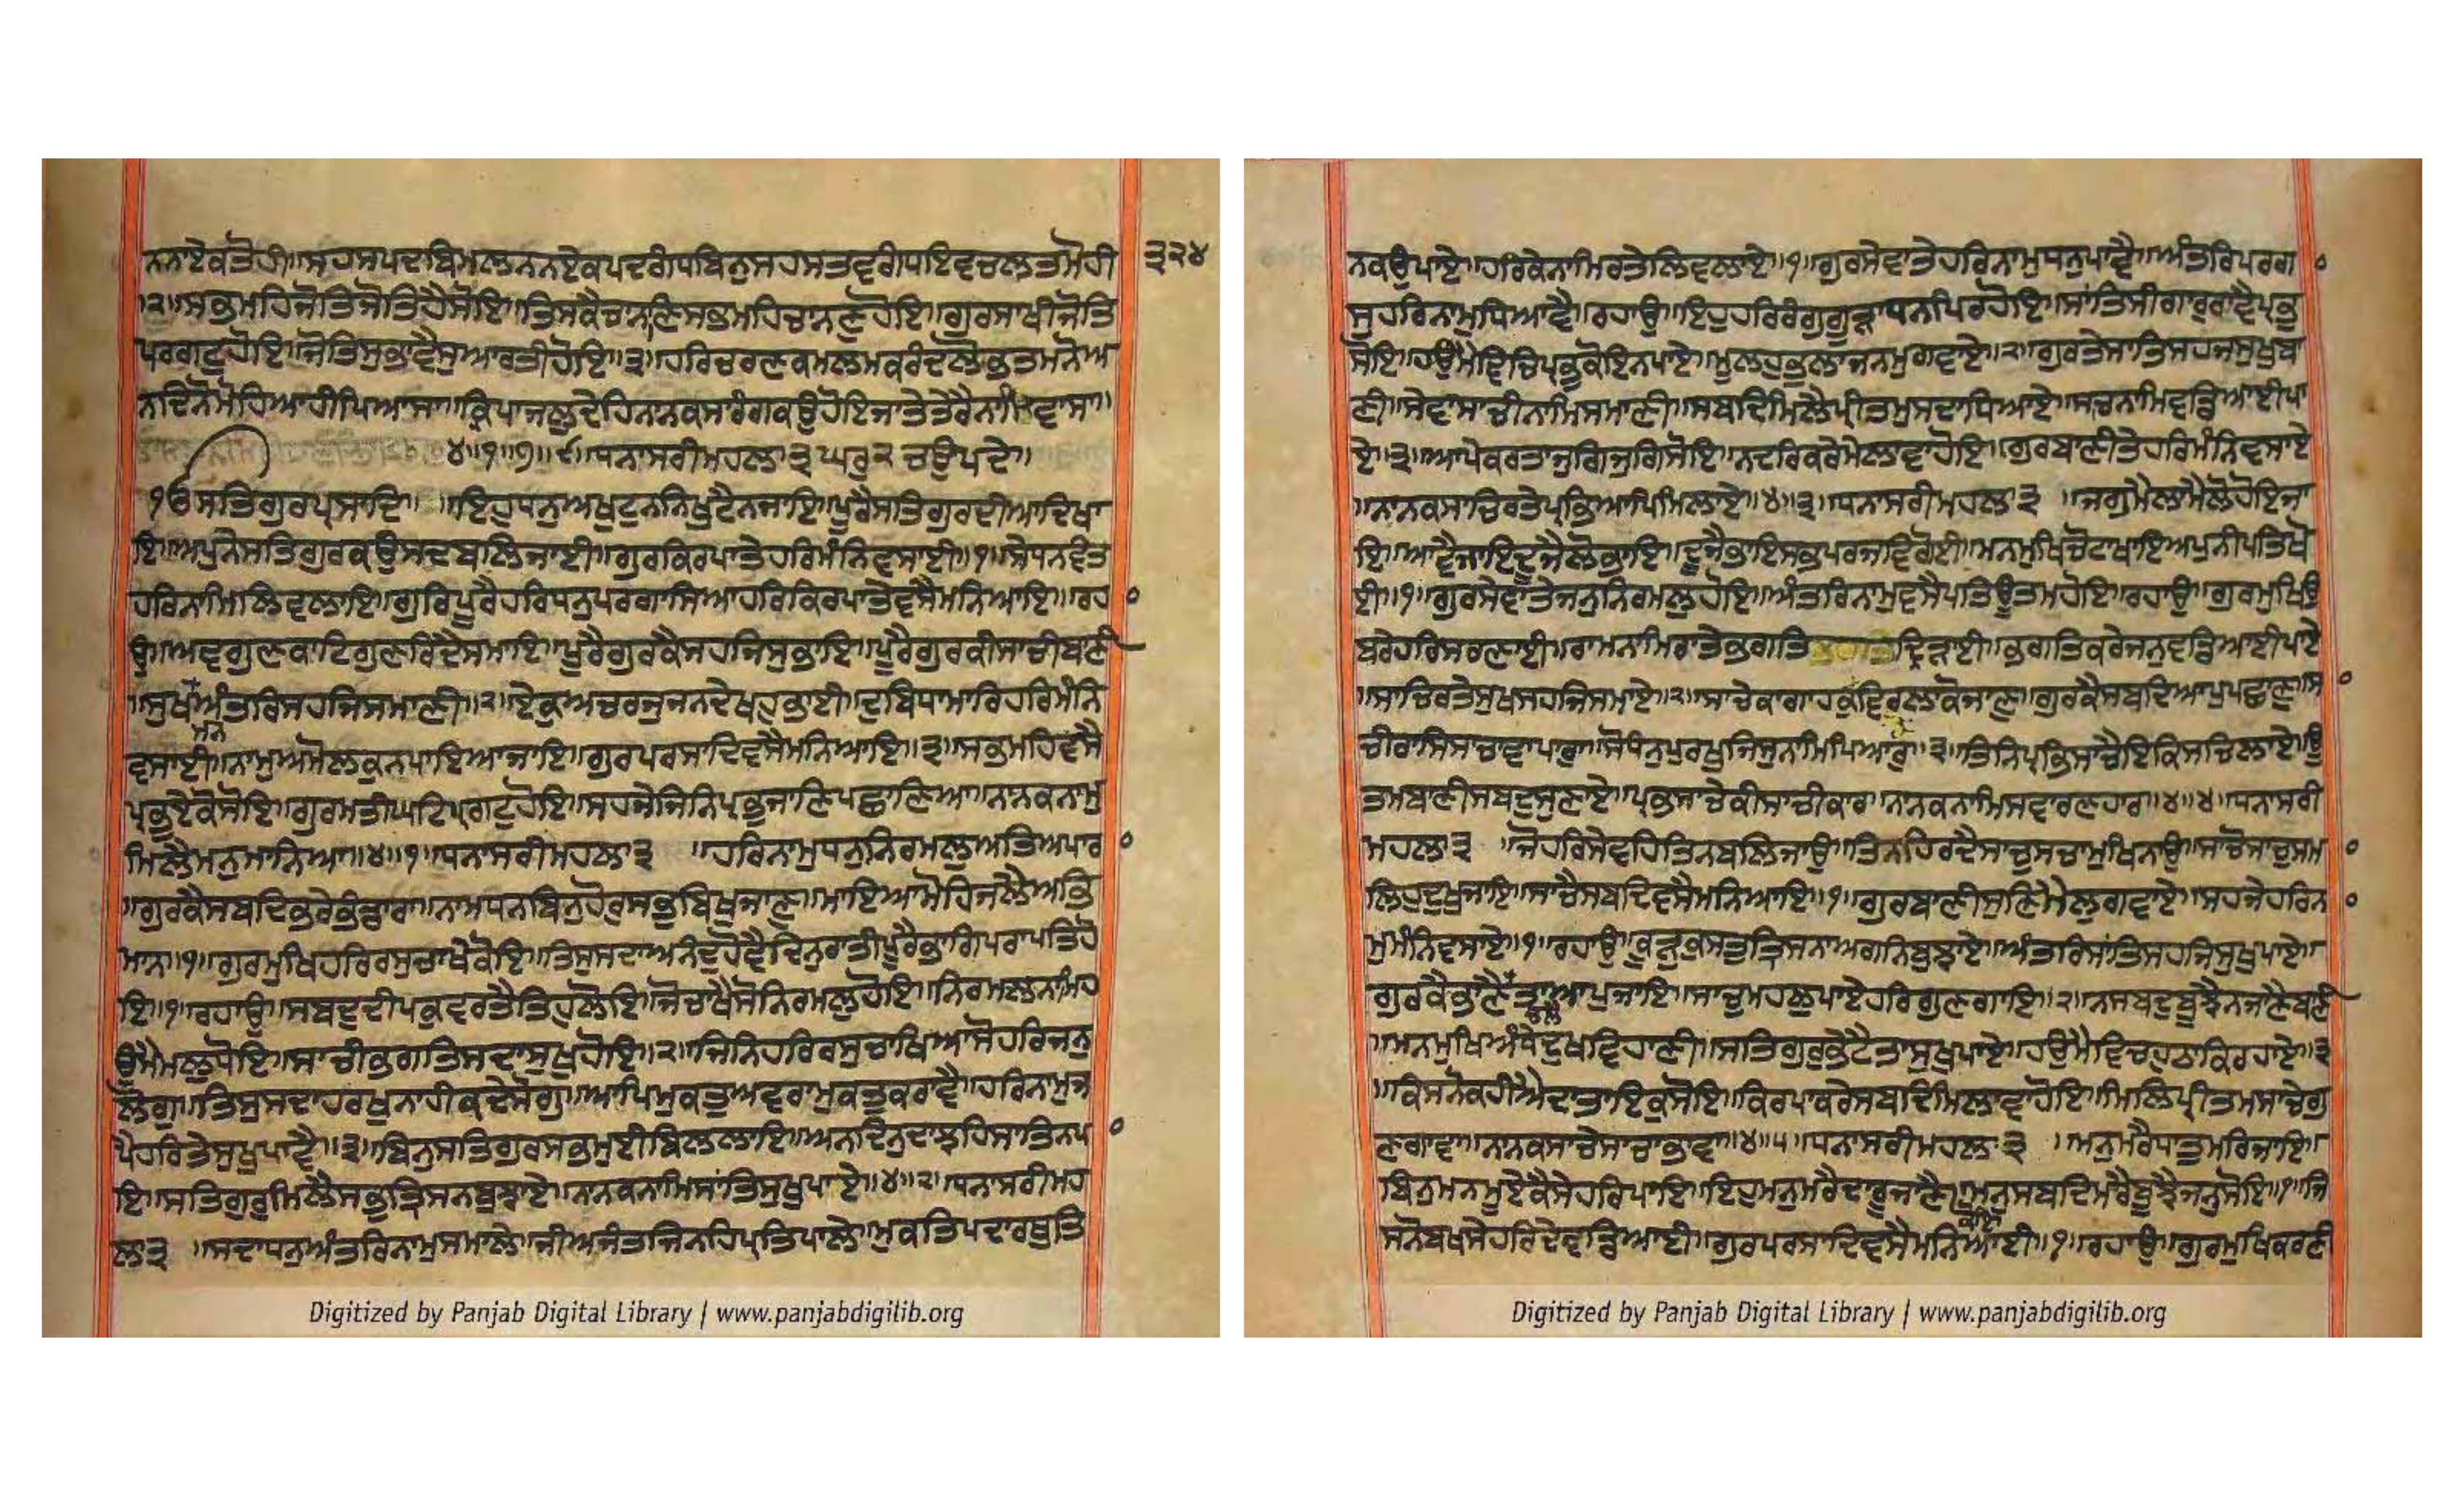 ਨਨਾਏਕਤੋਹੀ॥ਸਹਸਪਦਬਿਮਲਨਨਏਕਪਦਗੰਧਬਿਨੁਸਹਸਤਵਗੰਧਇਵਚਲਤਮੋਹੀ ੩੨੪
॥੨॥ਸਭਮਹਿਜੋਤਿਜੋਤਿਹੈਸੋਇ॥ਤਿਸਕੈਚਾਨਣਿਸਭਮਹਿਚਾਨਣੁਹੋਇ॥ਗੁਰਸਾਖੀਜੋਤਿ
ਪਰਗਟੁਹੋਇ॥ਜੋਤਿਸੁਭਾਵੈਸੁਆਰਤੀਹੋਇ॥੩॥ਹਰਿਚਰਣਕਮਲਮਕਰੰਦਲੋਭਤਮਨੋਅ
ਨਦਿਨੋਮੋਹਿਆਹੀਪਿਆਸਾ॥ਕ੍ਰਿਪਾਜਲੁਦੇਹਿਨਨਕਸਾਰੰਗਕਉਹੋਇਜਾਤੇਤੇਰੈਨਾਮਿਵਾਸਾ॥
੪॥੧॥੭॥੯॥ਧਨਾਸਰੀਮਹਲਾ੩ਘਰੁ੨ਚਉਪਦੇ॥
ੴਸਤਿਗੁਰਪ੍ਰਸਾਦਿ॥ ॥ਇਹੁਧਨੁਅਖੁਟੁਨਨਿਖੁਟੈਨਜਾਇ॥ਪੂਰੈਸਤਿਗੁਰਦੀਆਦਿਖਾ
ਇ॥ਅਪੁਨੇਸਤਿਗੁਰਕਉਸਦਬਲਿਜਾਈ॥ਗੁਰਕਿਰਪਾਤੇਹਰਿਮੰਨਿਵਸਾਈ॥੧॥ਸੇਧਨਵੰਤ
ਹਰਿਨਾਮਿਲਿਵਲਾਇ॥ਗੁਰਿਪੂਰੈਹਰਿਧਨੁਪਰਗਾਸਿਆਹਰਿਕਿਰਪਾਤੇਵਸੈਮਨਿਆਇ॥ਰਹ
ਉ॥ਅਵਗੁਣਕਾਟਿਗੁਣਰਿਦੈਸਮਾਇ॥ਪੂਰੈਗੁਰਕੈਸਹਜਿਸੁਭਾਇ॥ਪੂਰੈਗੁਰਕੀਸਾਚੀਬਾਣੀ
॥ਸੁਖਮਨਅੰਤਰਿਸਹਜਿਸਮਾਣੀ॥੨॥ਏਕੁਅਚਰਜੁਜਨਦੇਖਹੁਭਾਈ॥ਦੁਬਿਧਾਮਾਰਿਹਰਿਮੰਨਿ
ਵਸਾਈ॥ਨਾਮੁਅਮੋਲਕੁਨਪਾਇਆਜਾਇ॥ਗੁਰਪਰਸਾਦਿਵਸੈਮਨਿਆਇ॥੩॥ਸਭਮਹਿਵਸੈ
ਪ੍ਰਭੁਏਕੋਸੋਇ॥ਗੁਰਮਤੀਘਟਿਪ੍ਰਗਟੁਹੋਇ॥ਸਹਜੇਜਿਨਿਪ੍ਰਭੁਜਾਣਿਪਛਾਣਿਆ॥ਨਾਨਕਨਾਮੁ
ਮਿਲੈਮਨੁਮਾਨਿਆ॥੪॥੧॥ਧਨਾਸਰੀਮਹਲਾ੩ ॥ਹਰਿਨਾਮੁਧਨੁਨਿਰਮਲੁਅਤਿਅਪਾਰ
॥ਗੁਰਕੈਸਬਦਿਭਰੇਭੰਡਾਰਾ॥ਨਾਮਧਨਬਿਨੁਹੋਰਸਭਬਿਖੁਜਾਣੁ॥ਮਾਇਆਮੋਹਿਜਲੈਅਭਿ
ਮਾਨ॥੧॥ਗੁਰਮੁਖਿਹਰਿਰਸੁਚਾਖੈਕੋਇ॥ਤਿਸੁਸਦਾਅਨੰਦੁਹੋਵੈਦਿਨੁਰਾਤੀਪੂਰੈਭਾਗਿਪਰਾਪਤਿਹੋ
ਇ॥੧॥ਰਹਾਉ॥ਸਬਦੁਦੀਪਕੁਵਰਤੈਤਿਹੁਲੋਇ॥ਜੋਚਾਖੈਸੋਨਿਰਮਲੁਹੋਇ॥ਨਿਰਮਲਨਾਮਿਹ
ਉਮੈਮਲੁਧੋਇ॥ਸਾਚੀਭਗਤਿਸਦਾਸੁਖੁਹੋਇ॥੨॥ਜਿਨਿਹਰਿਰਸੁਚਾਖਿਆਸੋਹਰਿਜਨੁ
ਲੋਗੁ॥ਤਿਸੁਸਦਾਹਰਖੁਨਾਹੀਕਦੇਸੋਗੁ॥ਆਪਿਮੁਕਤੁਅਵਰਾਮੁਕਤੁਕਰਾਵੈ॥ਹਰਿਨਾਮੁਜ
ਪੈਹਰਿਤੇਸੁਖੁਪਾਵੈ॥੩॥ਬਿਨੁਸਤਿਗੁਰਸਭਮੁਈਬਿਲਲਾਇ॥ਅਨਦਿਨੁਦਾਝਹਿਸਾਤਿਨਪਾ
ਇ॥ਸਤਿਗੁਰੁਮਿਲੈਸਭੁਤ੍ਰਿਸਨਬੁਝਾਏ॥ਨਾਨਕਨਾਮਿਸਾਂਤਿਸੁਖੁਪਾਏ॥੪॥੨॥ਧਨਾਸਰੀਮਹ
ਲਾ੩ ॥ਸਦਾਧਨੁਅੰਤਰਿਨਾਮੁਸਮਾਲੇ॥ਜੀਅਜੰਤਜਿਨਹਿਪ੍ਰਤਿਪਾਲੇ॥ਮੁਕਤਿਪਦਾਰਥੁਤਿ
ਨਕਉਪਾਏ॥ਹਰਿਕੇਨਾਮਿਰਤੇਲਿਵਲਾਏ॥੧॥ਗੁਰਸੇਵਾਤੇਹਰਿਨਾਮੁਧਨੁਪਾਵੈ॥ਅੰਤਰਿਪਰਗਾ
ਸੁਹਰਿਨਾਮੁਧਿਆਵੈ॥ਰਹਾਉ॥ਇਹੁਹਰਿਰੰਗੁਗੂੜਾਧਨਪਿਰਹੋਇ॥ਸਾਂਤਿਸੀਗਾਰੁਰਾਵੈਪ੍ਰਭੁ
ਸੋਇ॥ਹਉਮੈਵਿਚਿਪ੍ਰਭੁਕੋਇਨਪਾਏ॥ਮੂਲਹੁਭੁਲਾਜਨਮੁਗਵਾਏ॥੨॥ਗੁਰਤੇਸਾਤਿਸਹਜਸੁਖੁਬਾ
ਣੀ॥ਸੇਵਾਸਾਚੀਨਾਮਿਸਮਾਣੀ॥ਸਬਦਿਮਿਲੈਪ੍ਰੀਤਮੁਸਦਾਧਿਆਏ॥ਸਾਚਨਾਮਿਵਡਿਆਈਪਾ
ਏ॥੩॥ਆਪੇਕਰਤਾਜੁਗਿਜੁਗਿਸੋਇ॥ਨਦਰਿਕਰੇਮੇਲਾਵਾਹੋਇ॥ਗੁਰਬਾਣੀਤੇਹਰਿਮੰਨਿਵਸਾਏ
॥ਨਾਨਕਸਾਚਿਰਤੇਪ੍ਰਭਿਆਪਿਮਿਲਾਏ॥੪॥੩॥ਧਨਾਸਰੀਮਹਲਾ੩ ॥ਜਗੁਮੈਲਾਮੈਲੋਹੋਇਜਾ
ਇ॥ਆਵੈਜਾਇਦੂਜੈਲੋਭਾਇ॥ਦੂਜੈਭਾਇਸਭਪਰਜਵਿਗੋਈ॥ਮਨਮੁਖਿਚੋਟਾਖਾਇਅਪੁਨੀਪਤਿਖੋ
ਈ॥੧॥ਗੁਰਸੇਵਾਤੇਜਨੁਨਿਰਮਲੁਹੋਇ॥ਅੰਤਰਿਨਾਮੁਵਸੈਪਤਿਊਤਮਹੋਇ॥ਰਹਾਉ॥ਗੁਰਮੁਖਿਉ
ਬਰੇਹਰਿਸਰਣਾਈ॥ਰਾਮਨਾਮਿਰਾਤੇਭਗਤਿਦ੍ਰਿੜਾਈ॥ਭਗਤਿਕਰੇਜਨੁਵਡਿਆਈਪਾਏ
॥ਸਾਚਿਰਤੇਸੁਖਸਹਜਿਸਮਾਏ॥੨॥ਸਾਚੇਕਾਗਾਹਕੁਵਿਰਲਾਕੋਜਾਣੁ॥ਗੁਰਕੈਸਬਦਿਆਪੁਪਛਾਣੁ॥ਸ
ਚੀਰਾਸਿਸਾਚਾਵਾਪਾਰੁ॥ਸੋਧੰਨੁਪੁਰਖੁਜਿਸੁਨਾਮਿਪਿਆਰੁ॥੩॥ਤਿਨਿਪ੍ਰਭਿਸਾਚੈਇਕਿਸਚਿਲਾਏ॥ਊ
ਤਮਬਾਣੀਸਬਦੁਸੁਣਾਏ॥ਪ੍ਰਭਸਾਚੇਕੀਸਾਚੀਕਾਰ॥ਨਾਨਕਨਾਮਿਸਵਾਰਣਹਾਰ॥੪॥੪॥ਧਨਾਸਰੀ
ਮਹਲਾ੩ ॥ਜੋਹਰਿਸੇਵਹਿਤਿਨਬਲਿਜਾਉ॥ਤਿਨਹਿਰਦੈਸਾਚੁਸਚਾਮੁਖਿਨਾਉ॥ਸਾਚੋਸਾਚੁਸਮਾ
ਲਿਹੁਦੁਖੁਜਾਇ॥ਸਾਚੈਸਬਦਿਵਸੈਮਨਿਆਇ॥੧॥ਗੁਰਬਾਣੀਸੁਣਿਮੈਲੁਗਵਾਏ॥ਸਹਜੇਹਰਿਨਾ
ਮੁਮੰਨਿਵਸਾਏ॥੧॥ਰਹਾਉ॥ਕੂੜੁਕੁਸਤੁਤ੍ਰਿਸਨਾਅਗਨਿਬੁਝਾਏ॥ਅੰਤਰਿਸਾਂਤਿਸਹਜਿਸੁਖੁਪਾਏ॥
ਗੁਰਕੈਭਾਣੈਆਪੁਜਾਇ॥ਸਾਚੁਮਹਲੁਪਾਏਹਰਿਗੁਣਗਾਇ॥੨॥ਨਸਬਦੁਬੂਝੈਨਜਾਣੈਬਾਣੀ
॥ਮਨਮੁਖਿਅੰਧੇਦੁਖਵਿਹਾਣੀ॥ਸਤਿਗੁਰੁਭੇਟੈਤਾਸੁਖੁਪਾਏ॥ਹਉਮੈਵਿਚਹੁਠਾਕਿਰਹਾਏ॥੩
॥ਕਿਸਨੋਕਹੀਐਦਾਤਾਇਕੁਸੋਇ॥ਕਿਰਪਾਕਰੇਸਬਦਿਮਿਲਾਵਾਹੋਇ॥ਮਿਲਿਪ੍ਰੀਤਮਸਾਚੇਗੁ
ਣਗਾਵਾ॥ਨਾਨਕਸਾਚੇਸਾਚਾਭਾਵਾ॥੪॥੫॥ਧਨਾਸਰੀਮਹਲਾ੩ ॥ਮਨੁਮਰੈਧਾਤੁਮਰਿਜਾਇ॥
ਬਿਨੁਮਨਮੂਏਕੈਸੇਹਰਿਪਾਇ॥ਇਹੁਮਨੁਮਰੈਦਾਰੂਜਾਣੈਕੋਇ॥ਮਨੁਸਬਦਿਮਰੈਬੂਝੈਜਨੁਸੋਇ॥੧॥ਜਿ
ਸਨੋਬਖਸੇਹਰਿਦੇਵਡਿਆਈ॥ਗੁਰਪਰਸਾਦਿਵਸੈਮਨਿਆਈ॥੧॥ਰਹਾਉ॥ਗੁਰਮੁਖਿਕਰਣੀ
Digitized by Panjab Digital Library | www.panjabdigilib.org
Digitized by Panjab Digital Library | www.panjabdigilib.org